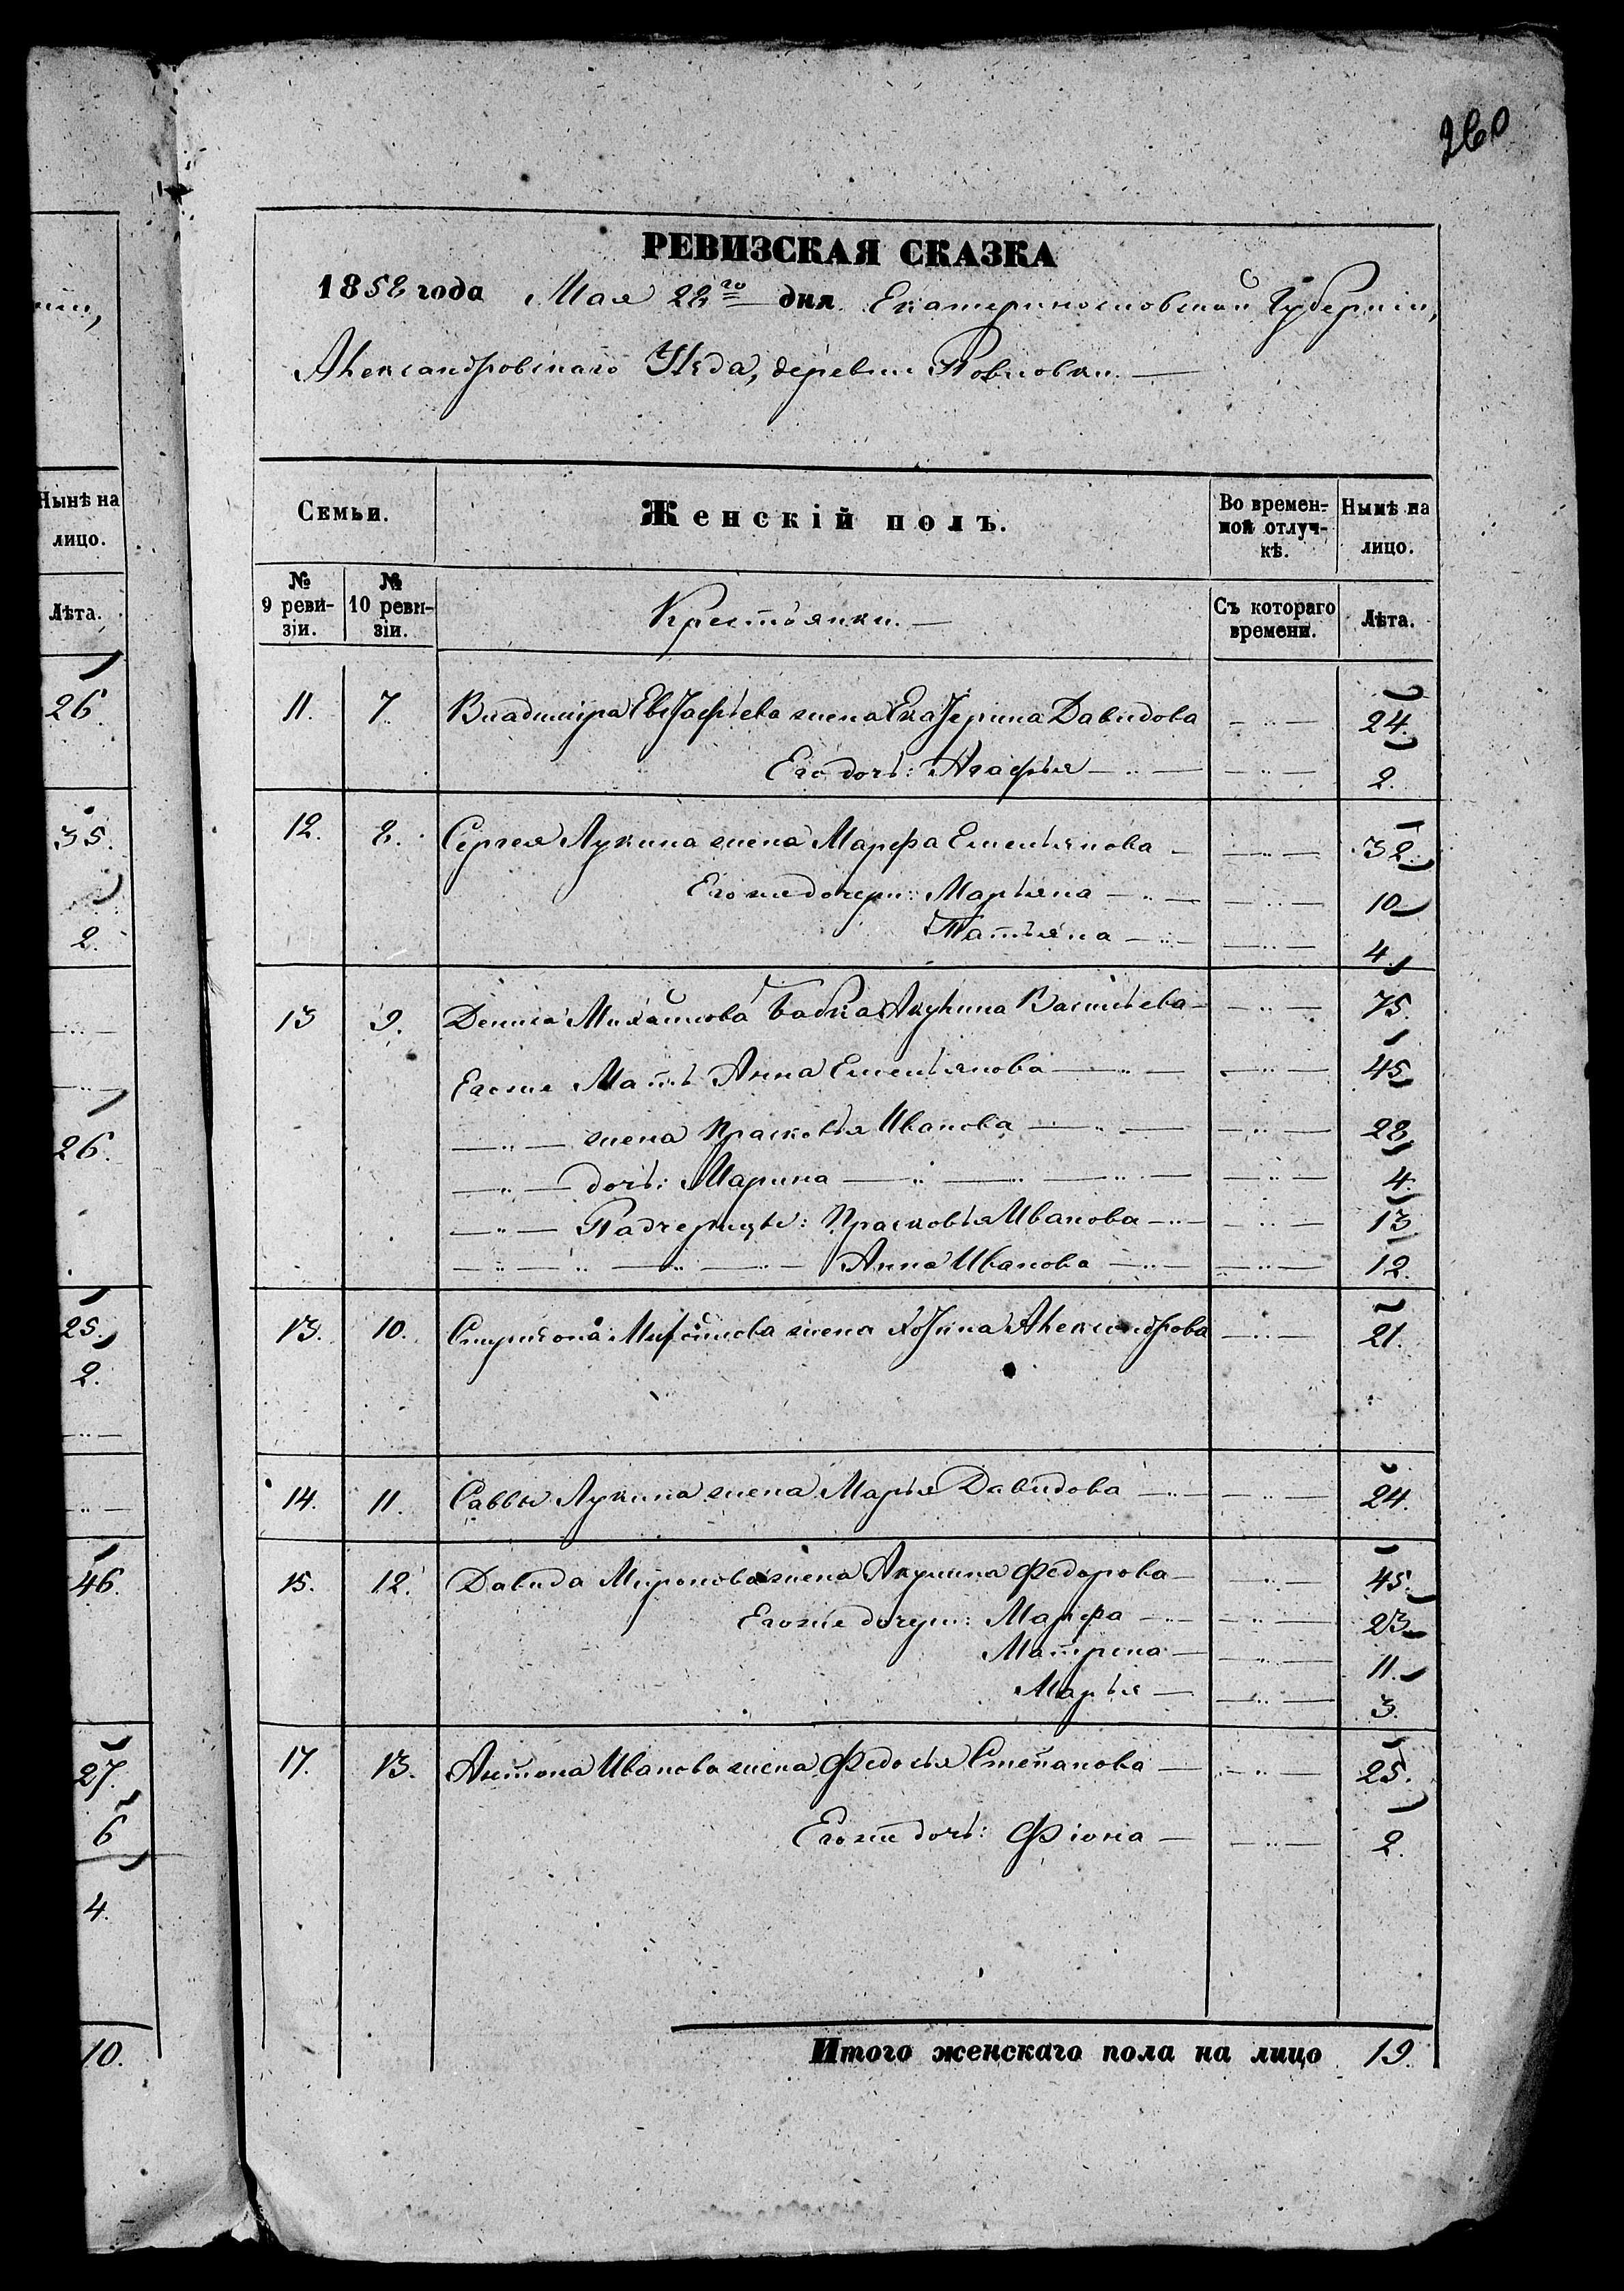 260
РЕВИЗСКАЯ СКАЗКА
1858 года Мая 28го дня Екатеринославской Губерніи,
Александровскаго Уѣзда, деревни Ровновки. —
Семьи.
Женскій полъ.
Во времен-
ной отлуч-
кѣ.
Нынѣ на
лицо.
№
9 реви-
зіи.
№
10 реви-
зіи.
Крестьянки. —
Съ котораго
времени.
Лѣта.
11. 7. Владимира Евстафьева жена Екатерина Давидова — „ — 24.
Его дочь: Агафья — „ — — „ — 2.
12. 8. Сергея Лукина жена Марфа Емельянова — — „ — 32.
Его же дочери: Марьяна — „ — — „ — 10
Татьяна — „ — — „ — 4.
13 9. Дениса Михайлова бабка Акулина Васильева — — „ — 75.
Его же Мать Анна Емельянова — „ — — „ — 45
— „ — жена Прасковья Иванова — „ — — „ — 28
— „ — дочь: Марина — „ — „ — — „ — 4.
— „ — Падчерицы: Прасковья Иванова — „ — — „ — 13
— „ — „ — „ — „ — Анна Иванова — „ — — „ — 12.
13. 10. Михайлова жена Александрова — „ — 21.
14. 11. Саввы Лукина жена Марья Давидова — „ — — „ — 24.
15. 12. Давида Миронова жена Акулина Федорова — — „ — 45.
Его же дочери: Марфа — „ — — „ — 23
Матрена — — „ — 11.
Марья — — „ — 3.
17. 13. Антона Иванова жена Федосья Степанова — — „ — 25.
Его же дочь: Фіона — — „ — 2.
Итого женскаго пола на лицо 19.
Нынѣ на
лицо.
Лѣта.
26
35.
2.
26.
25.
2.
46.
27.
6
4.
10.